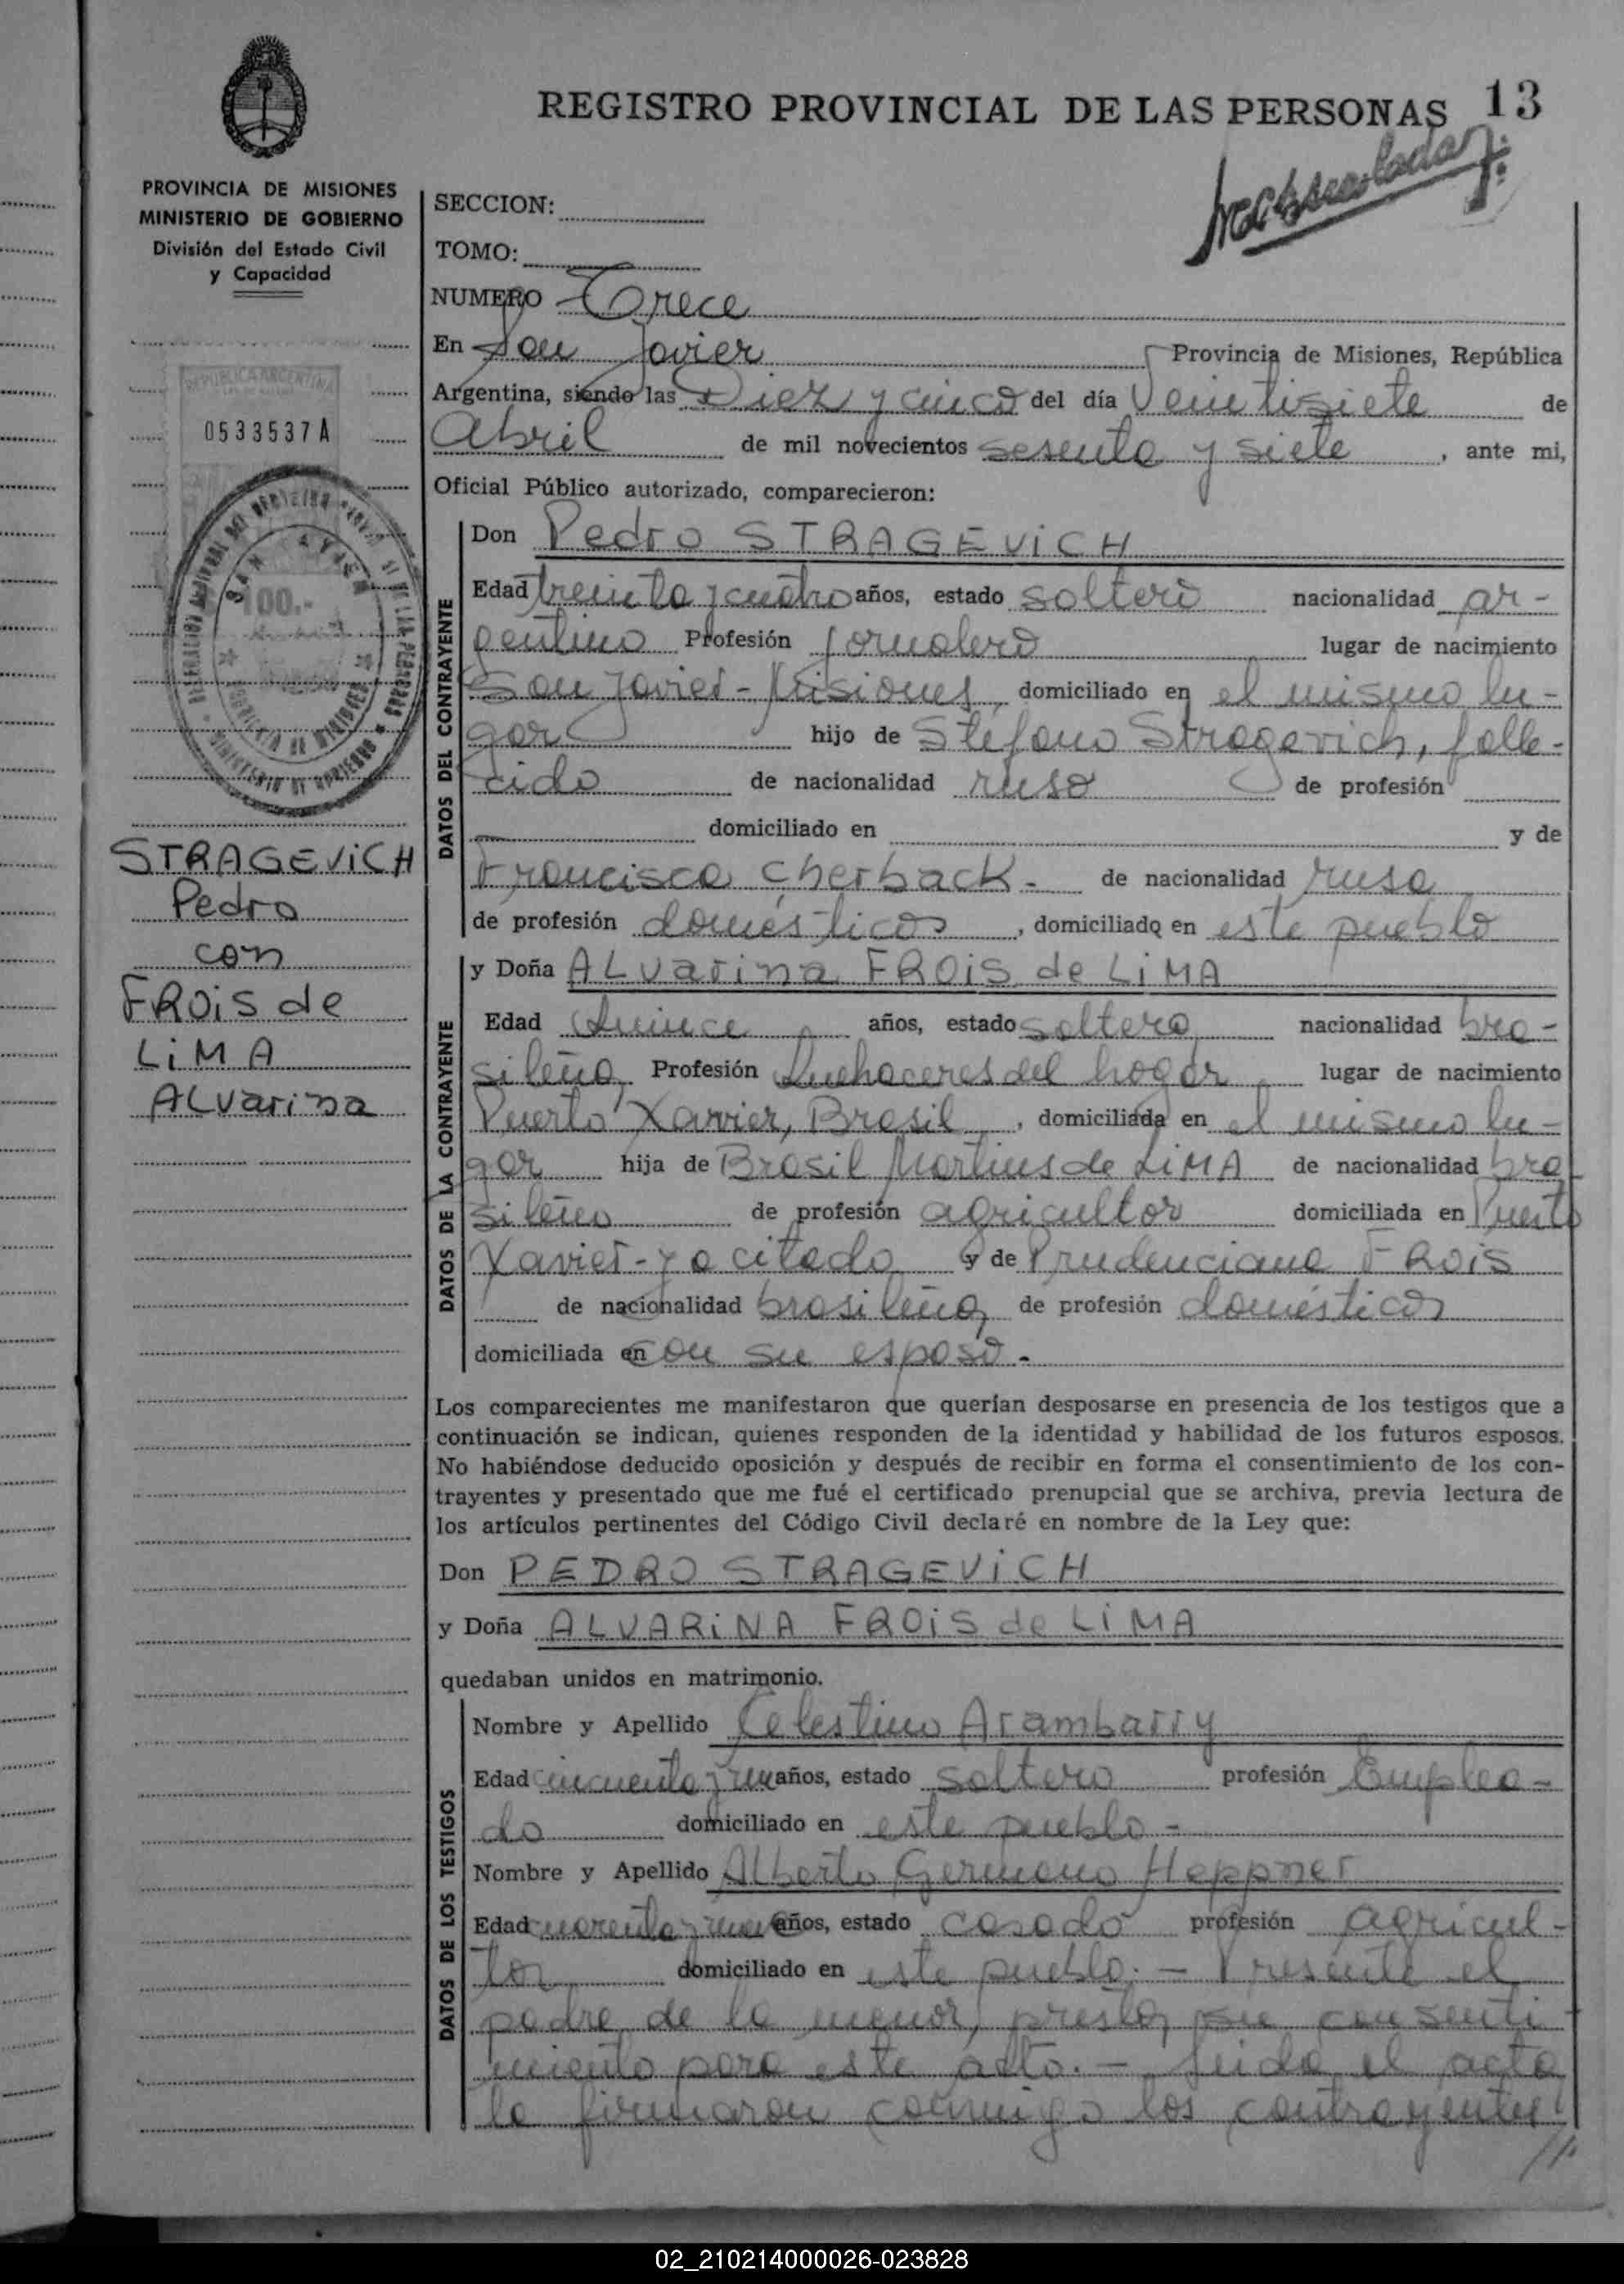 REGISTRO PROVINCIAL DE LAS PERSONAS 13
PROVINCIA DE MISIONES
MINISTERIO DE GOBIERNO
División del Estado Civil
y Capacidad
REPUBLICA ARGENTINA
0533537A
100.-
STRAGEVICH
Pedro
con
FROIS de
LIMA
ALVarina
SECCION:
TOMO:
NUMERO Trece
En San Javier Provincia de Misiones, República
Argentina, siendo las Diez y cinco del día Veintisiete de
Abril de mil novecientos sesenta y siete, ante mi,
Oficial Público autorizado, comparecieron:
DATOS DEL CONTRAYENTE
Don Pedro STRAGEVICH
Edad treinta y cuatro años, estado soltero nacionalidad ar-
gentino Profesión jornalero lugar de nacimiento
San Javier - Misiones, domiciliado en el mismo lu-
gar hijo de Stéfano Stragevich, falle-
cido de nacionalidad ruso de profesión
domiciliado en y de
Francisca Cherback - de nacionalidad rusa
de profesión domésticos, domiciliado en este pueblo
DATOS DE LA CONTRAYENTE
y Doña ALVarina FROIS de LIMA
Edad Quince años, estado soltera nacionalidad bra-
sileña, Profesión Quehaceres del hogar lugar de nacimiento
Puerto Xavier, Brasil, domiciliada en el mismo lu-
gar hija de Brasil Martins de LIMA de nacionalidad bra
sileño de profesión agricultor domiciliada en Puerto
Xavier - ya citado y de Prudenciana FROIS
de nacionalidad brasileña, de profesión domésticos
domiciliada en con su esposo -
Los comparecientes me manifestaron que querían desposarse en presencia de los testigos que a
continuación se indican, quienes responden de la identidad y habilidad de los futuros esposos.
No habiéndose deducido oposición y después de recibir en forma el consentimiento de los con-
trayentes y presentado que me fué el certificado prenupcial que se archiva, previa lectura de
los artículos pertinentes del Código Civil declaré en nombre de la Ley que:
Don PEDRO STRAGEVICH
y Doña ALVARINA FROIS de LIMA
quedaban unidos en matrimonio.
DATOS DE LOS TESTIGOS
Nombre y Apellido Celestino Arambarry
Edad cincuenta y un años, estado soltero profesión Emplea-
do domiciliado en este pueblo -
Nombre y Apellido Alberto Germano Heppner
Edad años, estado casado profesión agricul-
tor domiciliado en este pueblo. - Presente el
padre de la menor, prestó su consenti
miento para este acto. - Leída el acta
la firmaron conmigo los contrayentes
//
02_210214000026-023828